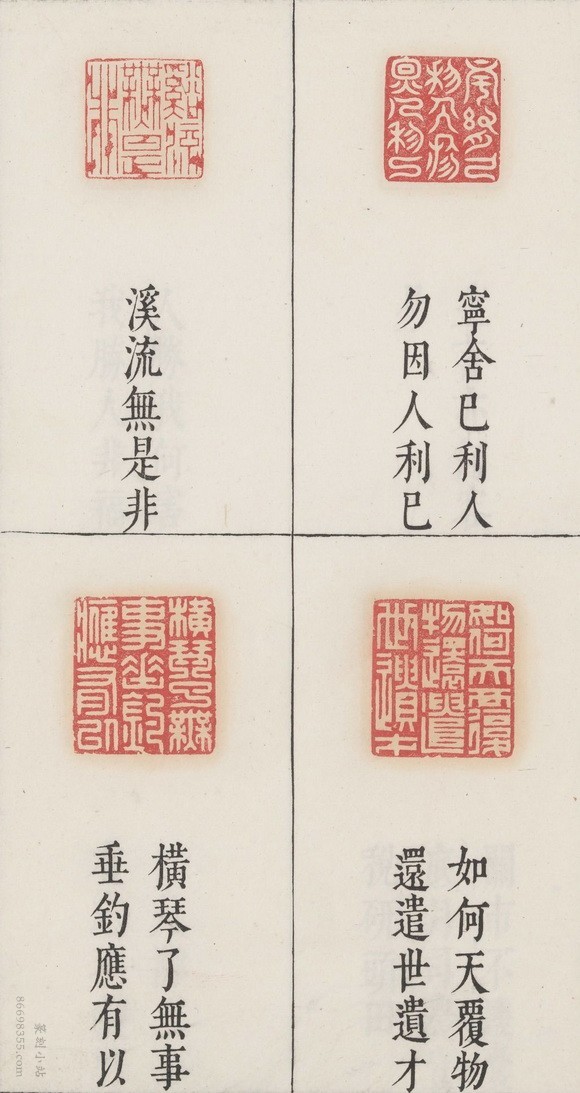 寧舍巳利人
勿因人利巳
溪流無是非
如何天覆物
還遣世遺才
橫琴了無事
垂釣應有以
篆刻小站
86698355.com